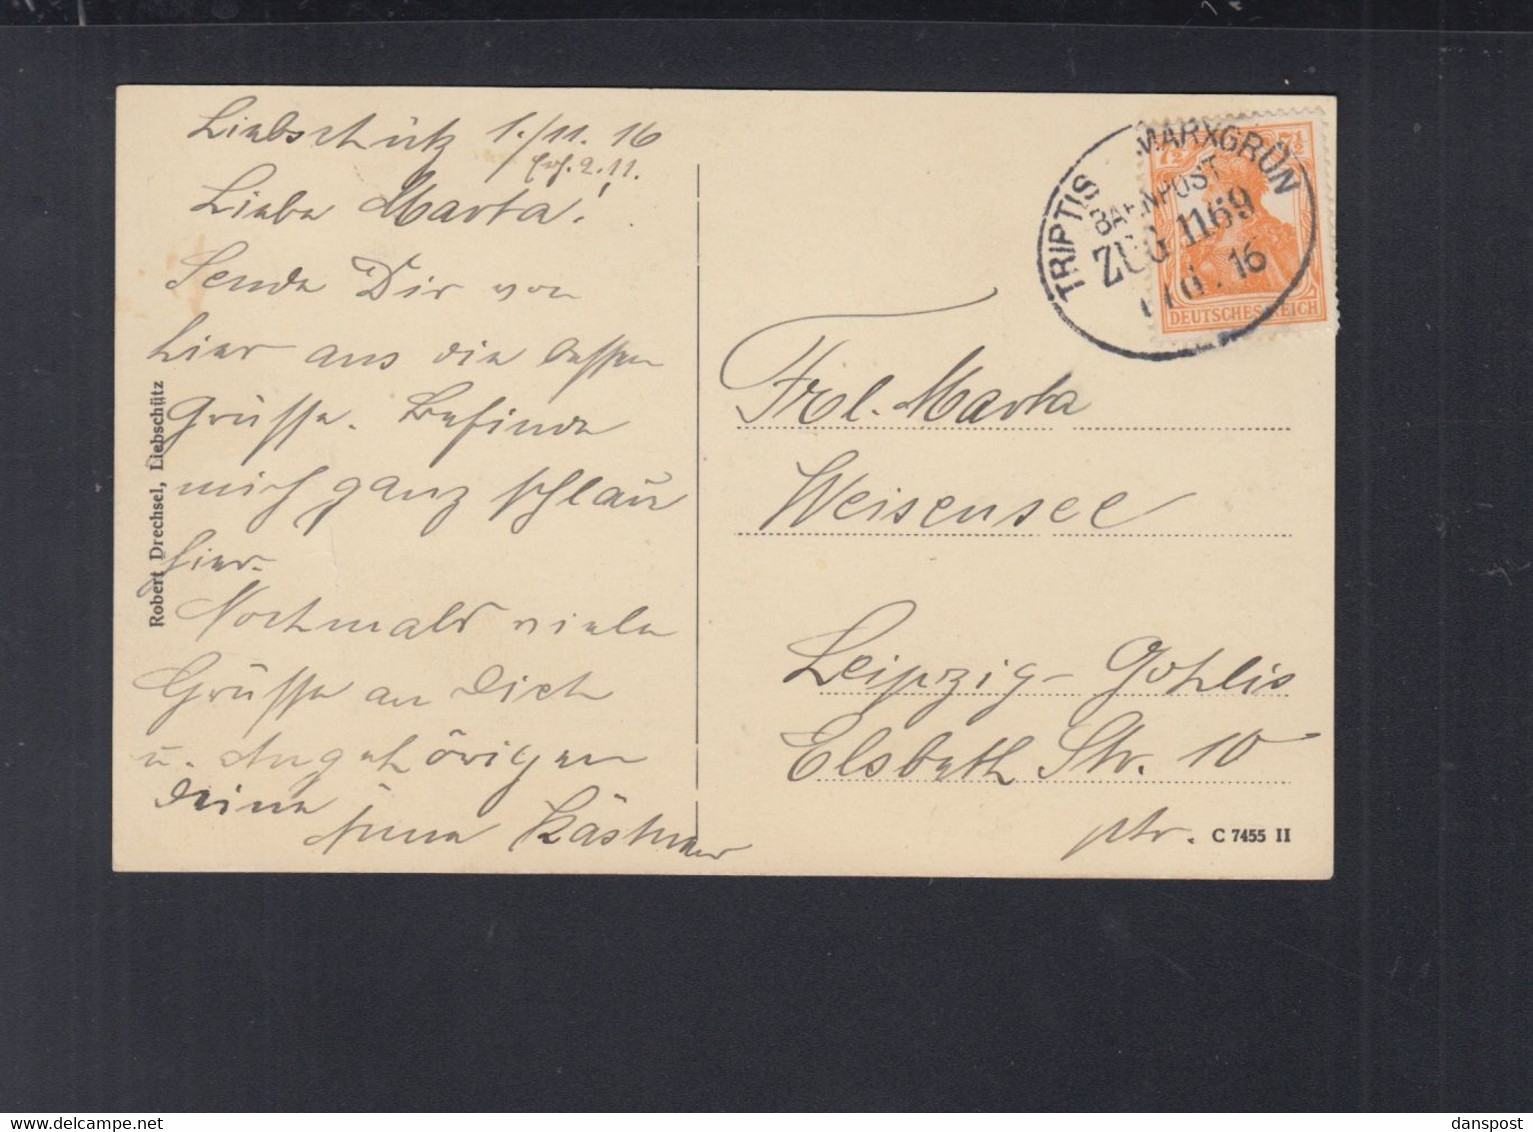 Liebschütz 1./11. 16
Erh. 2.11.
Liebe Marta!
Sende Dir von
hier aus die besten
Grüsse. Befinde
mich ganz schlau
hier.
Nochmals viele
Grüsse an Dich
u. Angehörigen
Deine
Anna Kästner
Robert Drechsel, Liebschütz
TRIPTIS MARXGRÜN
BAHNPOST
ZUG 1169
16
7½ 7½
DEUTSCHES REICH
Frl. Marta
Weisensee
Leipzig-Gohlis
Elsbeth Str. 10
ptr.
C 7455 II
danspost